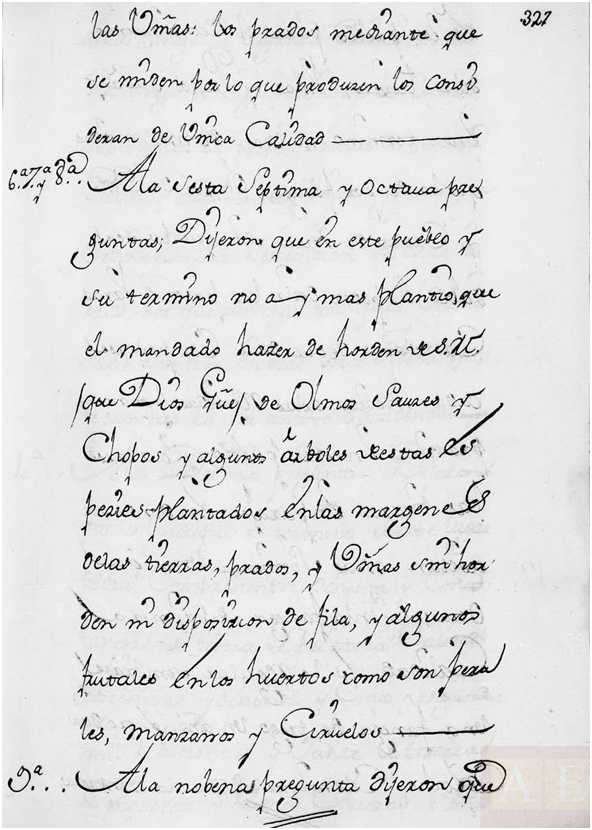 322
las Viñas: los prados mediante que
se miden por lo que produzen los consi
deran de Vnica Calidad
6.ª 7.ª y 8.ª Ala Sesta Septima y Octava pre
guntas; Dijeron que en este pueblo y
su termino no a y mas plantio, que
el mandado hazer de horden de S. M.
/que Dios Gue/ de Olmos Sauzes y
Chopos y algunos arboles destas es
pezies plantados en las margenes
delas tierras, prados, y Viñas sin hor
den ni disposizion de fila, y algunos
frutales en los huertos como son pera
les, manzanos y Ciruelos
9.ª Ala nobena pregunta dijeron que